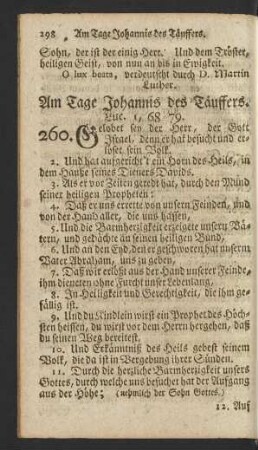 298 Am Tage Johannis des Täuffers.
Sohn, der ist der einig Herr. Und dem Tröster,
heiligen Geist, von nun an bis in Ewigkeit.
O lux beata, verdeutscht durch D. Martin
Luther.
Am Tage Johannis des Täuffers.
Luc. 1, 68 79.
260. Gelobet sey der Herr, der Gott
Israel, denn er hat besucht und er-
löset sein Volk.
2. Und hat aufgericht't ein Horn des Heils, in
dem Hauße seines Dieners Davids.
3. Als er vor Zeiten geredt hat, durch den Mund
seiner heiligen Propheten:
4. Daß er uns errette von unsern Feinden, und
von der Hand aller, die uns hassen,
5. Und die Barmherzigkeit erzeigete unsern Vä-
tern, und gedächte an seinen heiligen Bund,
6. Und an den Eyd, den er geschworen hat unserm
Vater Abraham, uns zu geben,
7. Daß wir erlößt aus der Hand unserer Feinde,
ihm dieneten ohne Furcht unser Lebenlang,
8. In Heiligkeit und Gerechtigkeit, die ihm ge-
fällig ist.
9. Und du Kindlein wirst ein Prophet des Höch-
sten heissen, du wirst vor dem Herrn hergehen, daß
du seinen Weg bereitest.
10. Und Erkänntniß des Heils gebest seinem
Volk, die da ist in Vergebung ihrer Sünden.
11. Durch die herzliche Barmherzigkeit unsers
Gottes, durch welche uns besuchet hat der Aufgang
aus der Höhe; (nehmlich der Sohn Gottes.)
12. Auf